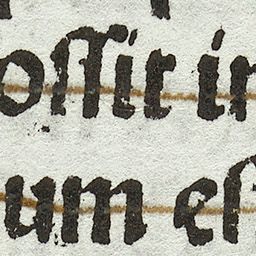 oſſit in
um eſ